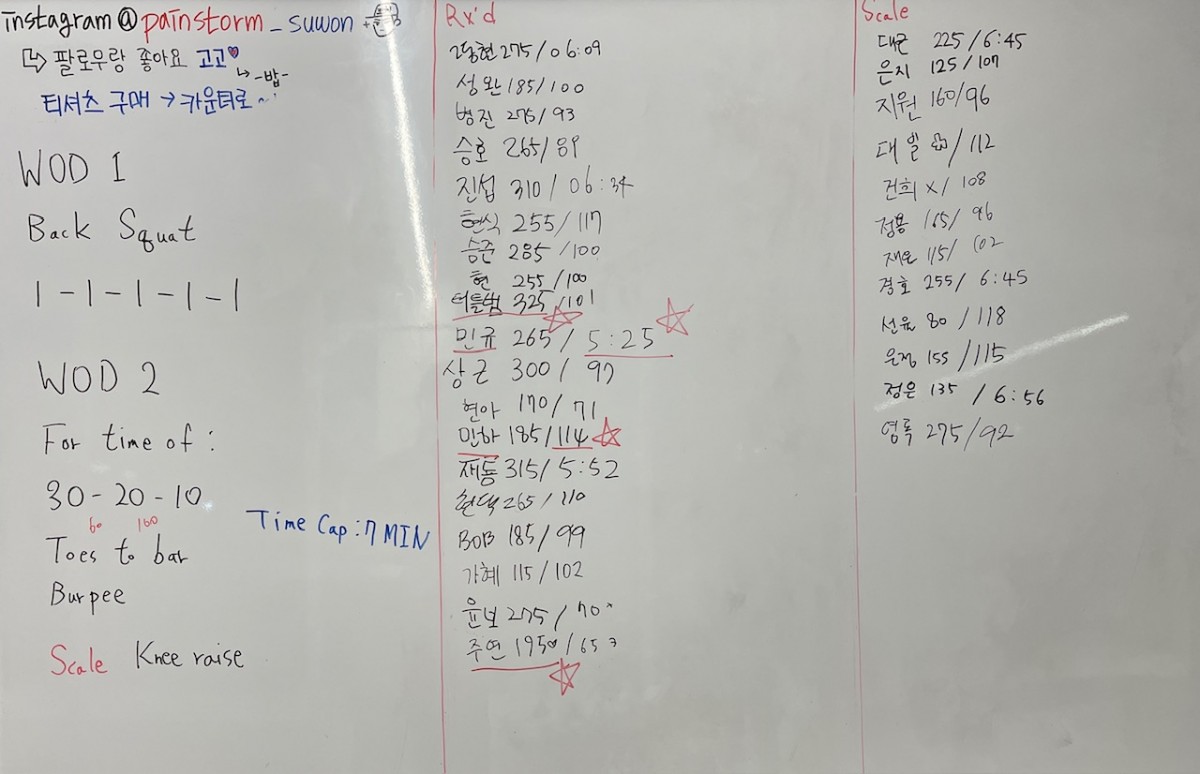 instagram@painstorm_suwon
↳ 팔로우랑 좋아요 고고♥
↳ -밥-
티셔츠 구매 → 카운터로~
WOD 1
Back Squat
1-1-1-1-1
WOD 2
For time of :
30-20-10
60 100
Toes to bar
Burpee
Time Cap : 7 MIN
Scale Knee raise
Rx'd
275/06:09
성완 185/100
병진 275/93
승호 265/89
진섭 310/06:34
현식 255/117
승준 285/100
현 255/100
터틀범 325/101
민규 265/5:25
상근 300/97
현아 170/71
민하 185/114
재동 315/5:52
265/110
BOB 185/99
가혜 115/102
윤보 275/70
주연 195/65
Scale
대근 225/6:45
은지 125/107
지원 160/96
대일 /112
건희 x/108
정용 165/96
재은 115/102
경호 255/6:45
선율 80/118
은정 155/115
정은 135/6:56
영록 275/92